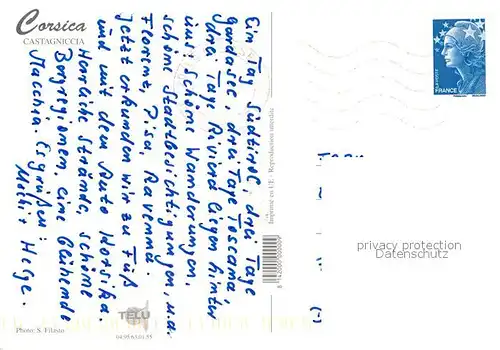 Corsica
CASTAGNICCIA
Ein Tag Südtirol, drei Tage
Gardasee, drei Tage Toscana,
drei Tage Riviera liegen hinter
uns: Schöne Wanderungen,
schöne Stadtbesichtigungen, u.a.
Florenz, Pisa, Ravenna.
Jetzt erkunden wir zu Fuß
und mit dem Auto Korsika.
Herrliche Strände, schöne
Bergregionen, eine blühende
Macchia. Es grüßen:
Helge.
Photo: S. Filasto
TELU
04.95.63.01.55
Imprimé en UE - Reproduction interdite
LA POSTE
FRANCE
privacy protection
DELCAMPE